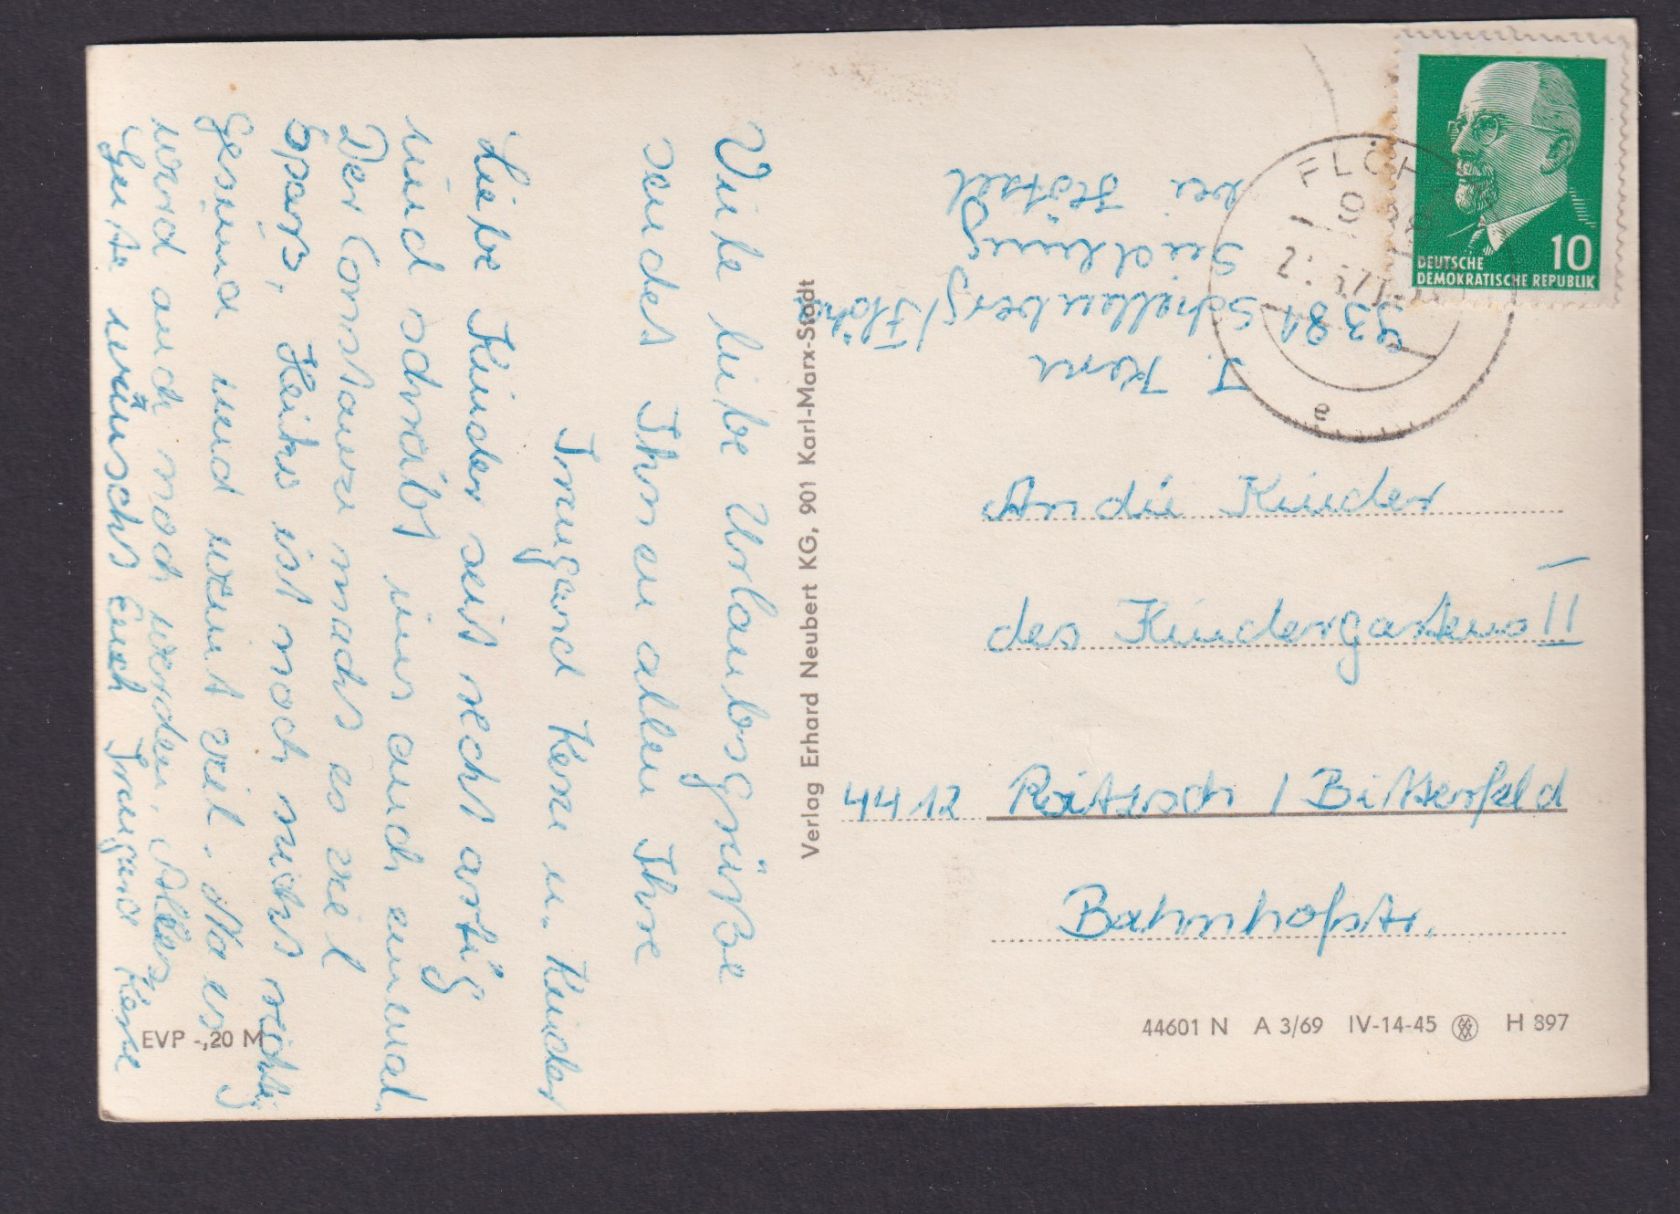 Viele liebe Urlaubsgrüße
sendet Ihnen allen Ihre
Irmgard Kern u. Kinder
Liebe Kinder seit recht artig
und schreibt uns auch einmal.
Der Constanze macht es viel
Spaß, Heike ist noch nicht richtig
gesund und weint viel. Na es
wird auch noch werden. Alles
Gute wünscht Euch Irmgard Kern
Verlag Erhard Neubert KG, 901 Karl-Marx-Stadt
EVP -,20 M
J. Kern
9381 Schellenberg/Flöha
Siedlung
bei
DEUTSCHE
DEMOKRATISCHE REPUBLIK
10
FLÖHA
An die Kinder
des Kindergartens II
4412 Roitzsch / Bitterfeld
Bahnhofstr.
44601 N A 3/69 IV-14-45 H 897